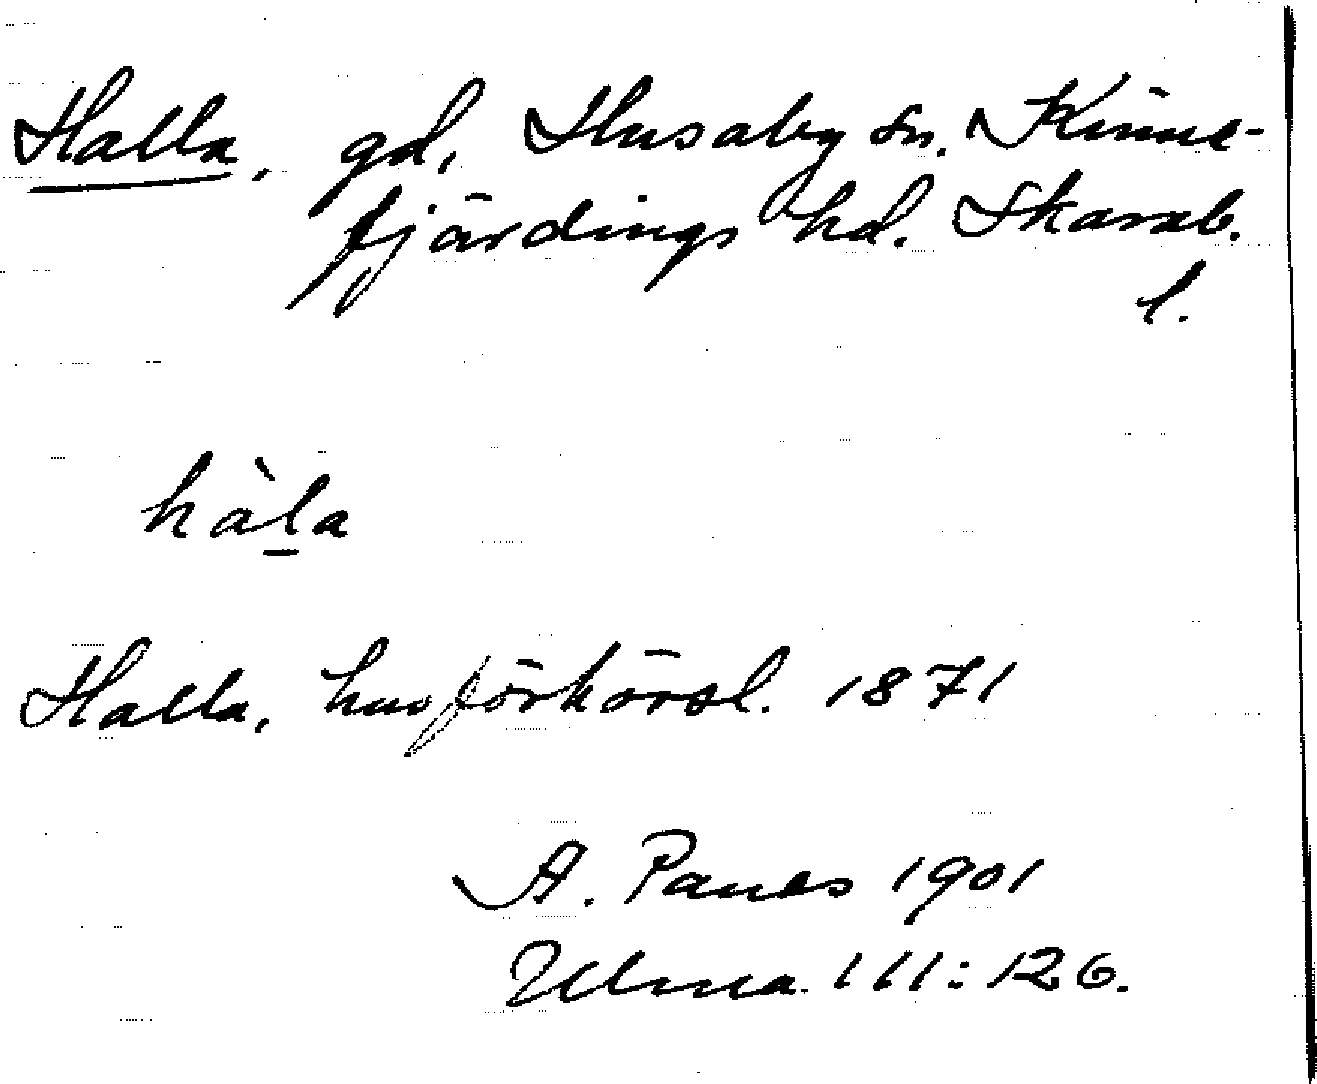 Halla, gd, Husaby sn. Kinne-
fjärdings hd. Skarab.
l.
hàl̲a
Halla, husförhörsl. 1871
A. Panes 1901
Ulma 111:126.